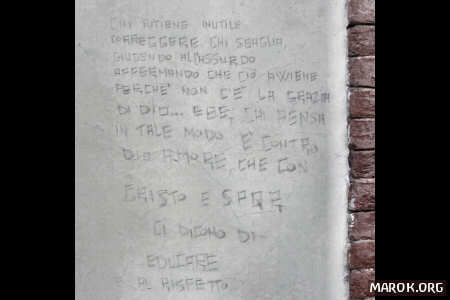 CHI RITIENE INUTILE
CORREGGERE CHI SBAGLIA,
GIUGENDO ALL'ASSURDO
AFFERMANDO CHE CIÒ AVVIENE
PERCHE' NON C'È LA GRAZIA
DI DIO... EBE, CHI PENSA
IN TALE MODO È CONTRO
DIO AMORE, CHE CON
CRISTO E SPQR
CI DICONO DI
EDUCARE
E AL RISPETTO
MAROK.ORG